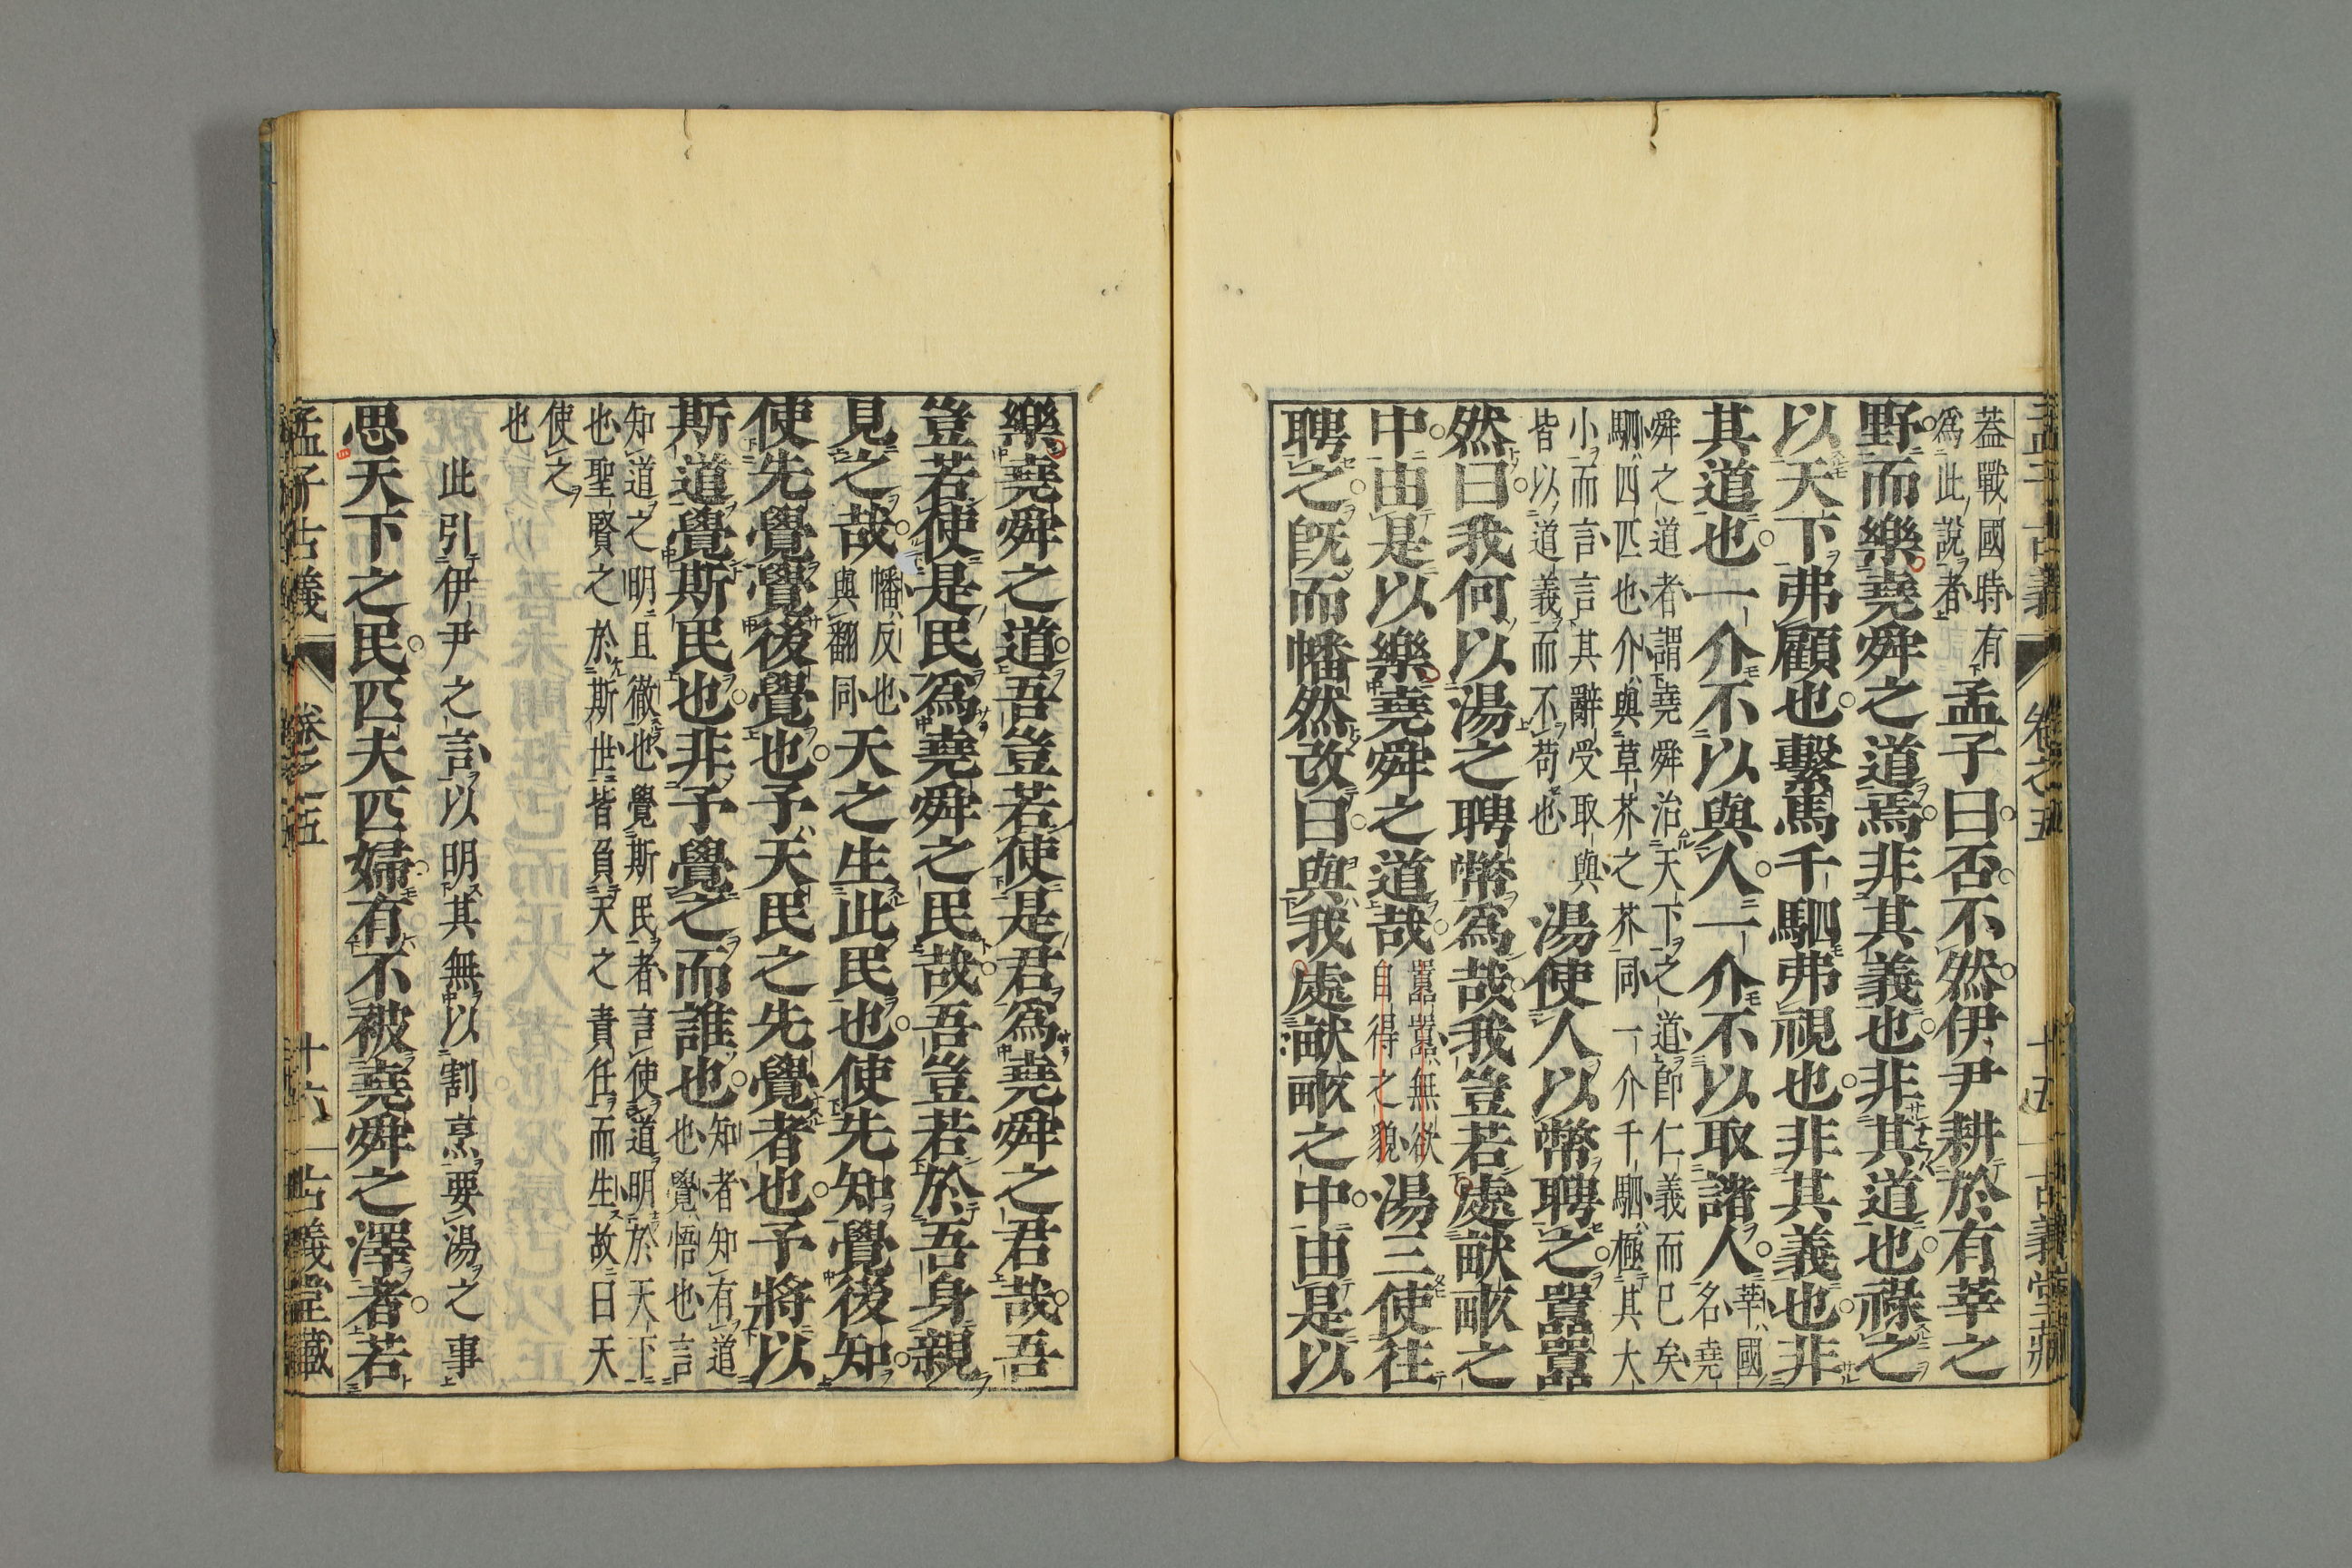 孟子古義 卷之五 十五 古義堂藏
蓋戰國時有
爲此說者
孟子曰否不然伊尹耕於有莘之
野而樂堯舜之道焉非其義也非其道也祿之
以天下弗顧也繫馬千駟弗視也非其義也非
其道也一介不以與人一介不以取諸人
莘國名堯
舜之道者謂堯舜治天下之道卽仁義而已矣
駟四匹也介與草芥之芥同一介千駟極其大
小而言言其辭受取與
皆以道義而不苟也
湯使人以幣聘之囂囂
然曰我何以湯之聘幣爲哉我豈若處畎畝之
中由是以樂堯舜之道哉
囂囂無欲
自得之貌
湯三使往
聘之旣而幡然改曰與我處畎畝之中由是以
樂堯舜之道吾豈若使是君爲堯舜之君哉吾
豈若使是民爲堯舜之民哉吾豈若於吾身親
見之哉
幡反也
與翻同
天之生此民也使先知覺後知
使先覺覺後覺也予天民之先覺者也予將以
斯道覺斯民也非予覺之而誰也
知者知有道
也覺悟也言
知道之明且徹也覺斯民者言使道明於天下
也聖賢之於斯世皆負天之責任而生故曰天
使之
也
此引伊尹之言以明其無以割烹要湯之事
思天下之民匹夫匹婦有不被堯舜之澤者若
孟子古義 卷之五 十六 古義堂藏